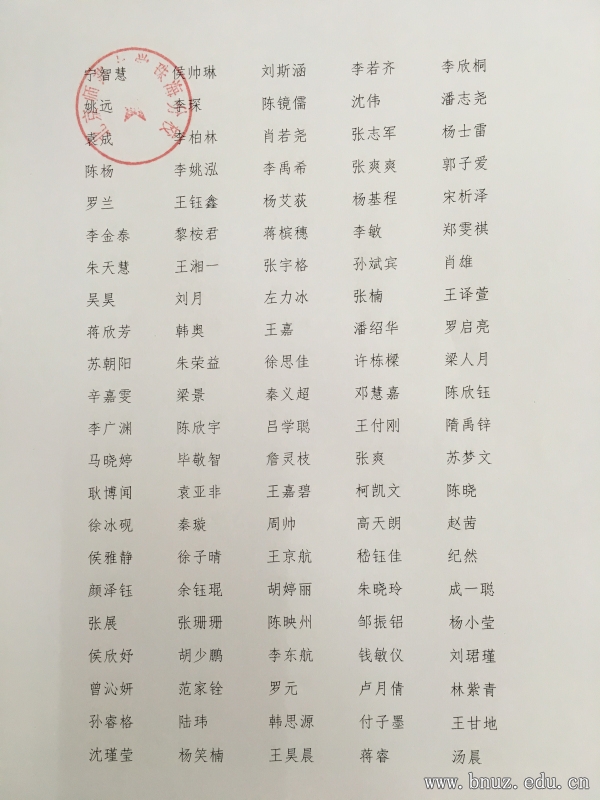 北京师范大学珠海分校
宁智慧 侯帅琳 刘斯涵 李若齐 李欣桐
姚远 李琛 陈镜儒 沈伟 潘志尧
袁成 李柏林 肖若尧 张志军 杨士雷
陈杨 李姚泓 李禹希 张爽爽 郭子爱
罗兰 王钰鑫 杨艾荻 杨基程 宋析泽
李金泰 黎桉君 蒋槟穗 李敏 郑雯祺
朱天慧 王湘一 张宇格 孙斌宾 肖雄
吴昊 刘月 左力冰 张楠 王译萱
蒋欣芳 韩奥 王嘉 潘绍华 罗启亮
苏朝阳 朱荣益 徐思佳 许栋樑 梁人月
辛嘉雯 梁景 秦义超 邓慧嘉 陈欣钰
李广渊 陈欣宇 吕学聪 王付刚 隋禹锌
马晓婷 毕敬智 詹灵枝 张爽 苏梦文
耿博闻 袁亚非 王嘉碧 柯凯文 陈晓
徐冰砚 秦璇 周帅 高天朗 赵茜
侯雅静 徐子晴 王京航 嵇钰佳 纪然
颜泽钰 余钰琨 胡婷丽 朱晓玲 成一聪
张展 张珊珊 陈映州 邹振铝 杨小莹
侯欣妤 胡少鹏 李东航 钱敏仪 刘珺瑾
曾沁妍 范家铨 罗元 卢月倩 林紫青
孙睿格 陆玮 韩思源 付子墨 王甘地
沈瑾莹 杨笑楠 王昊晨 蒋睿 汤晨
www.bnuz.edu.cn